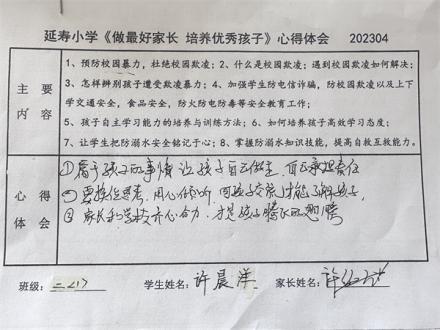 延寿小学《做最好家长 培养优秀孩子》心得体会 202304
主要内容
1、预防校园暴力，杜绝校园欺凌；2、什么是校园欺凌；遇到校园欺凌如何解决；
3、怎样辨别孩子遭受欺凌暴力；4、加强学生防电信诈骗，防校园欺凌以及上下
学交通安全，食品安全，防火防电防毒等安全教育工作；
5、孩子自主学习能力的培养与训练方法；6、如何培养孩子高效学习态度；
7、让学生把防溺水安全铭记于心；8、掌握防溺水知识技能，提高自救互救能力。
心得体会
①属于孩子的事情让孩子自己做主，自己承担责任
②要换位思考，用心倾听，同孩子交流才能了解孩子，
③家长和学校齐心合力，才是孩子腾飞的翅膀
班级： 学生姓名：许晨洋 家长姓名：许